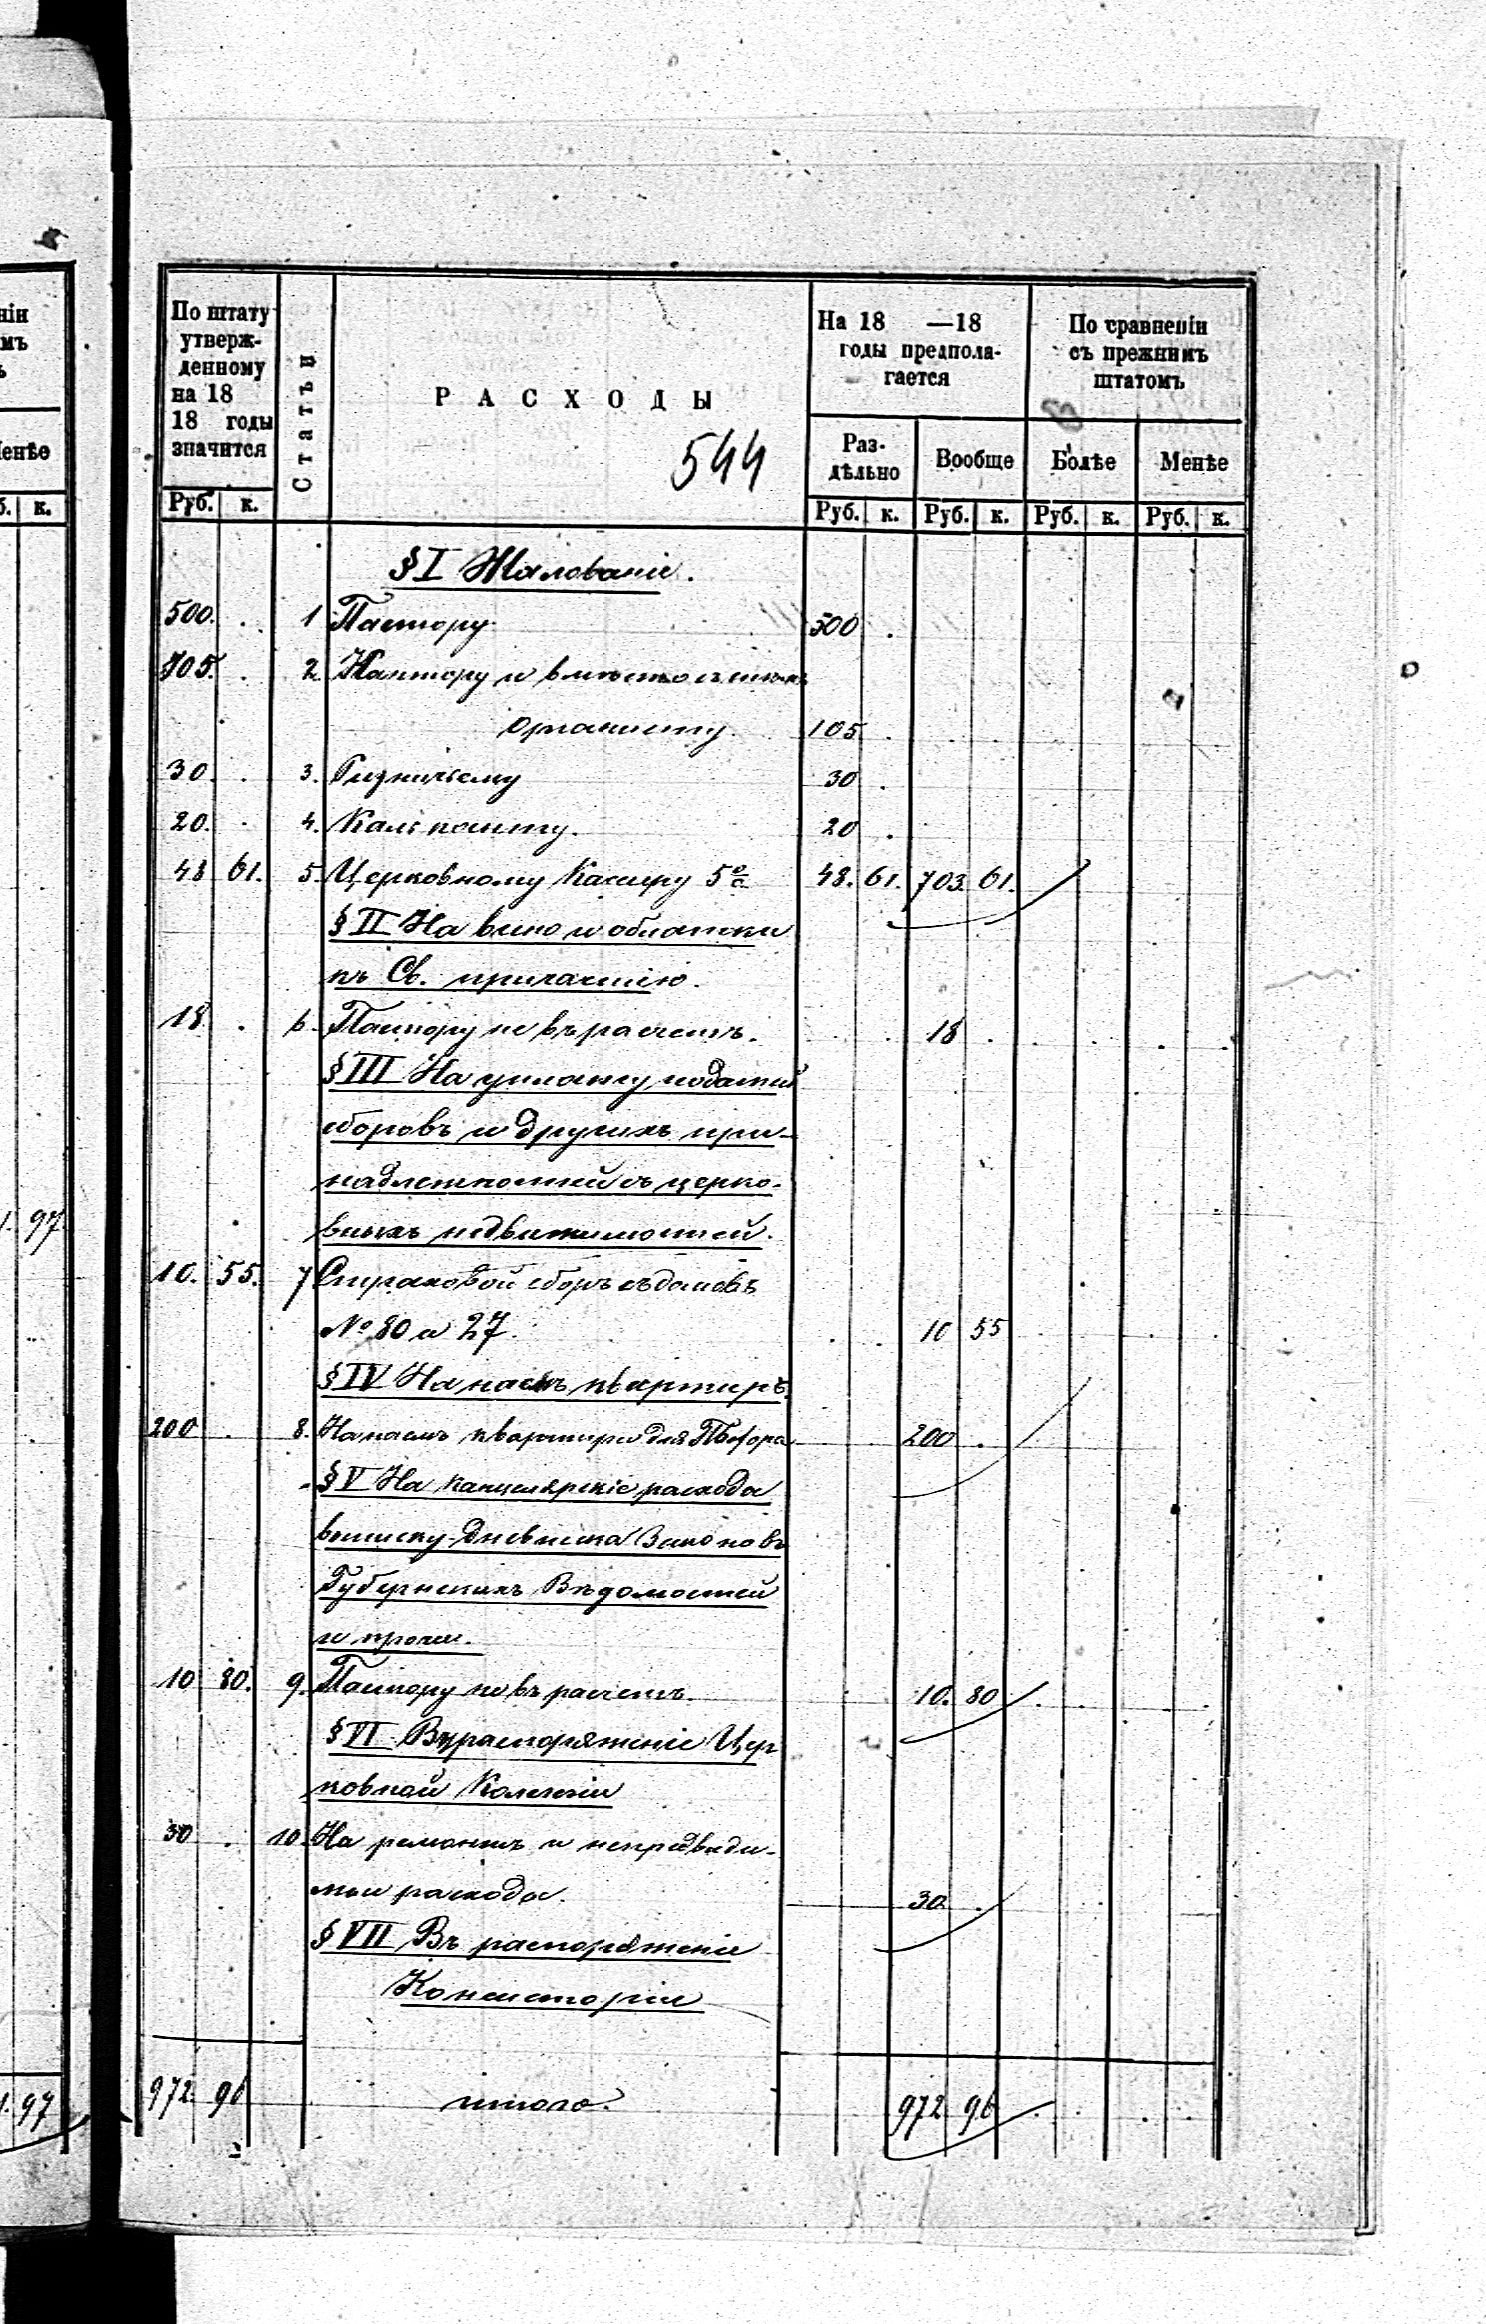 По штату утверж-денному на 18 18 годы значится
Статьи
РАСХОДЫ
544
На 18 —18 годы предпола-гается
По сравненiи съ прежнимъ штатомъ
Раз-дѣльно
Вообще
Болѣе
Менѣе
Руб. к. Руб. к. Руб. к. Руб. к. Руб. к.
§ I Жалованiе.
500. . 1 Пастору 500 .
105. . 2 Кантору и вмѣсто съ тѣмъ
органисту 105 .
30. . 3. Ризничему 30 .
20. . 4. Кальканту. 20 .
48 61. 5. Церковному Кассиру 5% 48. 61. 703. 61.
§ II На вино и облатки
къ Св. причастiю.
18 . 6. Пастору не въ расчетъ. 18 .
§ III На уплату податей
сборовъ и другихъ при-
надлежностей съ церко-
вныхъ недвижимостей.
10. 55. 7 Страховой сборъ съ домовъ
№ 80 и 27. 10 55
§ IV На наемъ квартиръ.
200 . 8. На наемъ квартиры для Пастора 200 .
§ V На канцелярскiе расхода
выписку дневника Законовъ
Губернскихъ Вѣдомостей
и прочее.
10 80. 9. Пастору не въ расчетъ. 10. 80
§ VI Въ распоряженiе Цер
ковной Коллегiи
30 . 10. На ремонтъ и непредвиди-
мые расхода. 30. .
§ VII Въ распоряженiе
Консисторiи
972 96 итого. 972 96
нiи
мъ
енѣе
б. к.
1. 97
1. 97